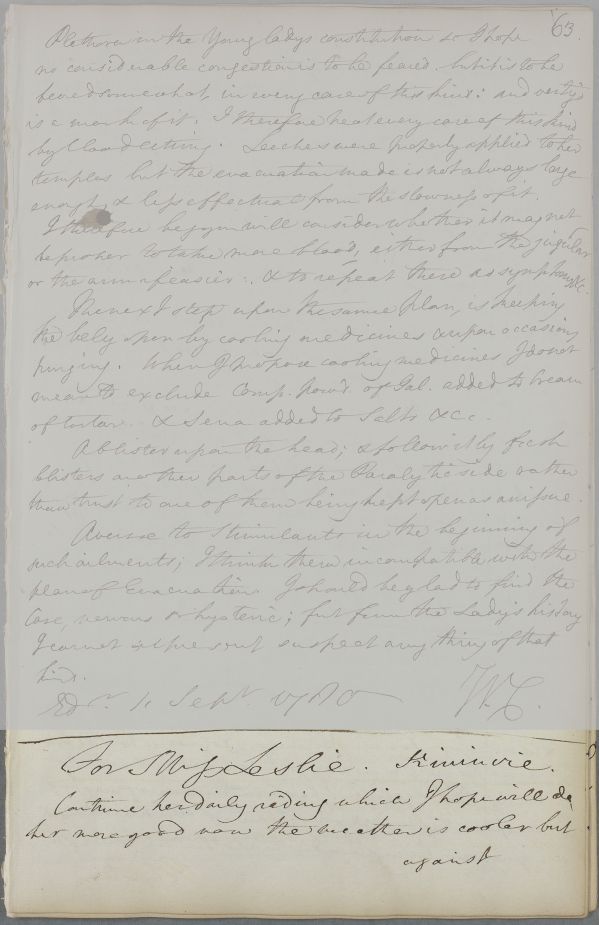 63.
Plethora in the Young ladys constitution so I hope
no considerable congestion is to be feared. but it is to be
feared somewhat, in every case of this kind: and vertigo
is a mark of it. I therefore treat every case of this kind
by blood letting. Leeches were properly applied to her
temples but the evacuation made is not always large
enough & less effectual from the slowness of it.
I therefore beg you will consider whether it may not
be proper to take more blood, either from the jugular
or the arm if easier. & to repeat these as symptoms &c.
The next step upon the same plan, is keeping
the bely open by cooling medicines & upon occasion
purging. When I propose cooling medicines I do not
mean to exclude Comp. powd. of Jal. added to Cream
of tartar. & Sena added to Salts &c.
A blister upon the head; & followed by fresh
blisters on other parts of the Paralytic side rather
than trust to one of them being kept open as an issue.
Averse to Stimulants in the beginning of
such ailments; I think them incompatible with the
plan of Evacuation. I should be glad to find the
Case, nervous or hysteric; but from the Lady's history
I cannot at present suspect any thing of that
kind.
Edr. 1. Sept. 1780 W.C.
For Miss Leslie. Kininvie.
Continue her daily riding which I hope will do
her more good now the weather is cooler but
against